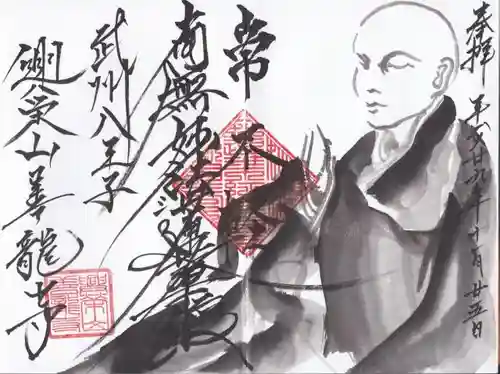 奉拝 平成廿九年十月廿五日
常不軽
南無妙法蓮華経
武州八王子
栄山善龍寺